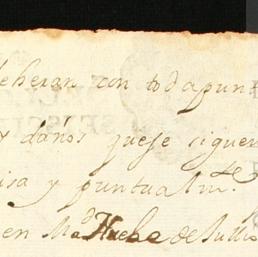 deberan con toda punt
y daños que se siguen
isa y puntualm.te
en M.d
de Julio